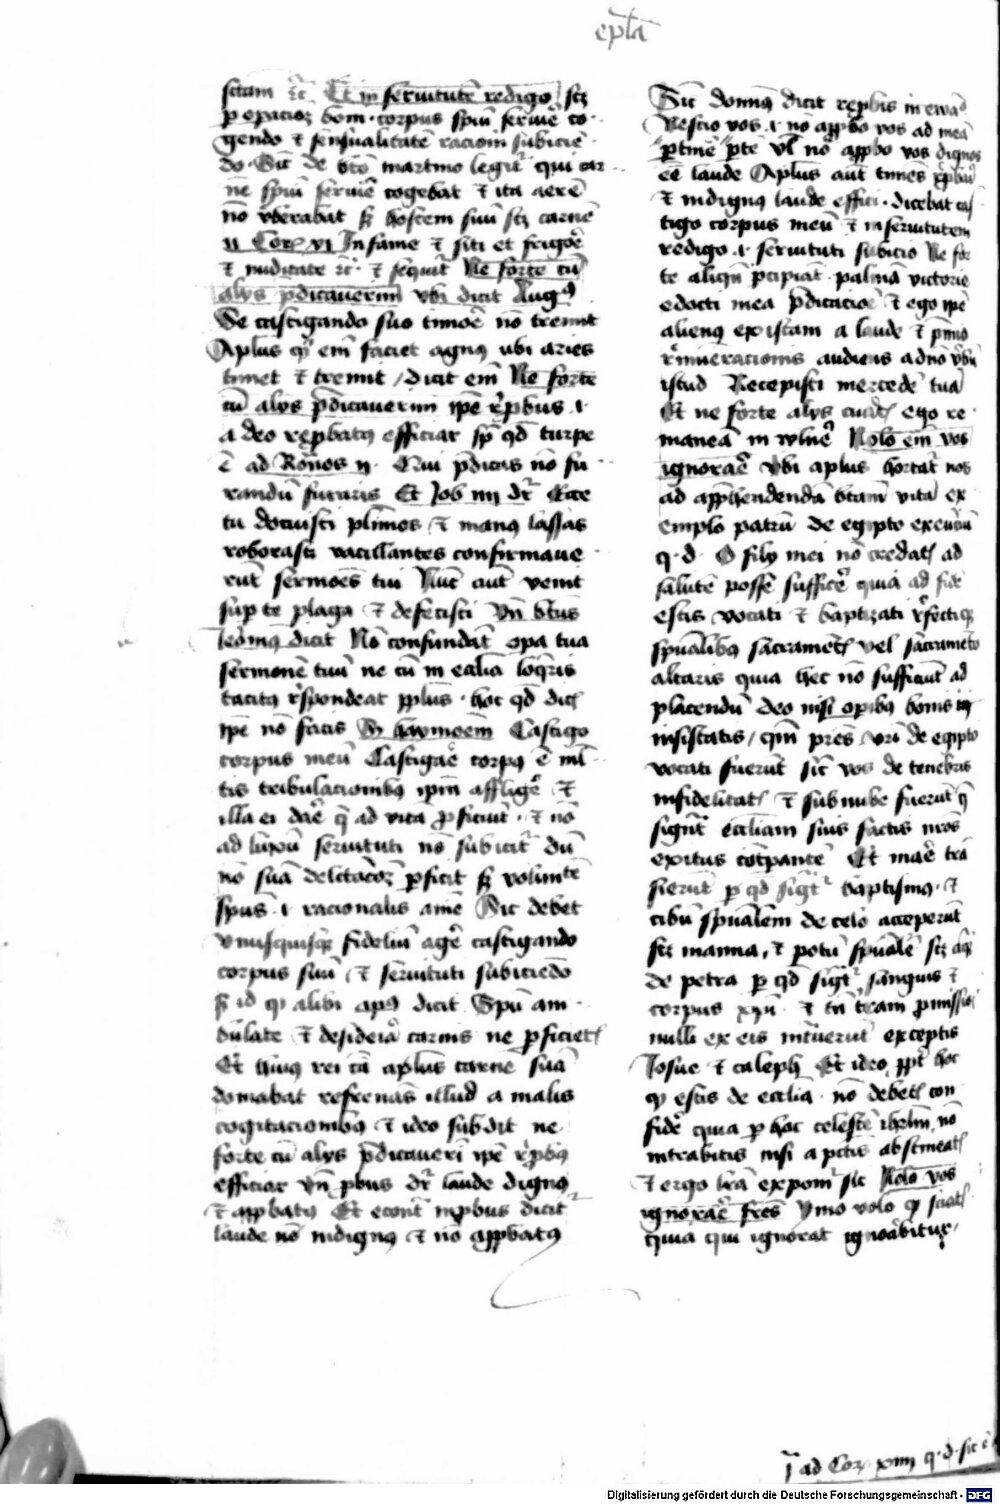 epl̄a
sc̄am ⁊c̄ Et in seruitutē redigo scȝ
bonū corpus spū seruīe co
gendo ⁊ sensualitatē racioni subicien
do Sic de bt̄o martino legit̄ qui car
nē spiū seruīe cogebat ⁊ ita aerē
nō v̾berabat hostem suū scȝ carnē
ii Corͥ vi In fame ⁊ siti et frigoē
⁊ nuditate ⁊c̄ ⁊ sequit̄ Ne forte cū
alijs p̄dicauerim vbi dicit Augꝰ
De castigando suo timoē nō tremit
Aplus qͥ em̄ faciet agnꝰ ubi aries
timet ⁊ tremit / dicit em̄ Ne forte
cū alijs p̄dicauerim ip̄e r̄pbus .i.
a deo rep̄batꝰ efficiar sp̄ qd̄ turpe
ē ad Romōs ii Qui p̄dicas nō fu
randū furaris Et Job iiii dr̄ Ecce
tu docuisti pl̄imos ⁊ manꝰ lassas
roborasti vacillantes confirmaue
rūt sermoēs tui Nūc aut̄ venit
sup te plaga ⁊ defecisti Vn̄ bt̄us
Ieōimꝰ dicit Nō confundāt oꝑa tua
sermonē tuū ne cū in eccl̄ia loq̄ris
tacitꝰ r̄spondeat pplus hoc qd̄ dicis
ip̄e nō facis haymoēm Castigo
corpus meū Castigāe corpꝰ ē ml̄
tis tribulacionibꝰ ip̄m affligē ⁊
illa ei dāe q̄ ad vitā ꝓficiūt ⁊ nō
ad luxū seruituti nō subicit̄ dū
nō suā delc̄acōꝫ ꝑficit sȝ volūtatē
spūs .i. racionalis aīme Sic debet
vnusquisqꝫ fideliū agē castigando
corpus suū ⁊ seruituti subiciēdo
sȝ id qͥ alibi apꝰ dicit Spū am
bulate ⁊ desideīa carnis ne ꝑficietis
Et huiꝰ rei cā aplus carnē suā
domabat refrenās illud a malis
cogitacionibꝰ ⁊ ideo subdit ne
forte cū alijs p̄dicaueri ip̄e r̄pbꝰ
efficiar Vn̄ pbus dr̄ laude dignꝰ
⁊ app̄batꝰ Et econt̄ inp̄bus dicit̄
laude nō indignꝰ ⁊ nō app̄batꝰ
Sic domīnꝰ dicit rep̄bis in ewā
Nescio vos .i. nō app̄bo vos ad meā
vl̄ nō app̄bo vos dignos
eē laude Aplus aut̄ timēs
⁊ indignꝰ laude effici dicebat cas
tigo corpus meū ⁊ in seruitutem
redigo .i. seruituti subicio Ne for
te aliqͥ ꝑcipiat palmā victorie
edocti mea p̄dicacioē ⁊ ego ip̄e
alienꝰ existam a laude ⁊ p̄mio
r̄mūeracionis audiens a dn̄o v̾bū
istud Recepisti mercedē tuā
Et ne forte alijs curatis ego re
maneā in vulnē Nolo em̄ vos
ignorāe vbi aplus hortat̄ nos
ad app̄hendendā btām vitā ex
emplo patrū de egipto exeuntiū
q.d. O filij mei nō credatis ad
salutē posse sufficē quia ad fidē
estis vocati ⁊ baptizati r̄fectiqꝫ
spūalibꝰ sacramentis vel sacrameto
altaris quia hec nō sufficiūt ad
placendū deo nisi oꝑibꝰ bonis
insistatis / qm̄ pres vr̄i de egipto
vocati fuerūt sic vos de tenebris
infidelitatis ⁊ sub nube fuerūt q̄
signāt eccl̄iam suis factis nr̄os
exitus Et maē trā
sierūt ꝑ qd̄ sigt̄ᵘ baptismus ⁊
cibū spūalem de celo acceperūt
scȝ manna, ⁊ potū spūalē scȝ aqͣ
de petra ꝑ qd̄ sigt̄ᵘ sanguis ⁊
corpus xpi ⁊ tn̄ t̾ram ꝓmissiōis
nulli ex eis intͣuerūt exceptis
Josue ⁊ caleph Et ideo ppt̾ hoc
qͥ estis de eccl̄ia nō debetis con
fidē quia ꝑ hoc celestē ihrl̄m nō
intrabitis nisi a pctīs abstineatis
⁊ ergo lr̄a exponit̄ sic Nolo vos
ignorāe frēs ymo volo qͥ sciatis
quia qui ignorat ignorabitur
j ad Corͥ xiiii q.d. sic
Digitalisierung gefördert durch die Deutsche Forschungsgemeinschaft - DFG